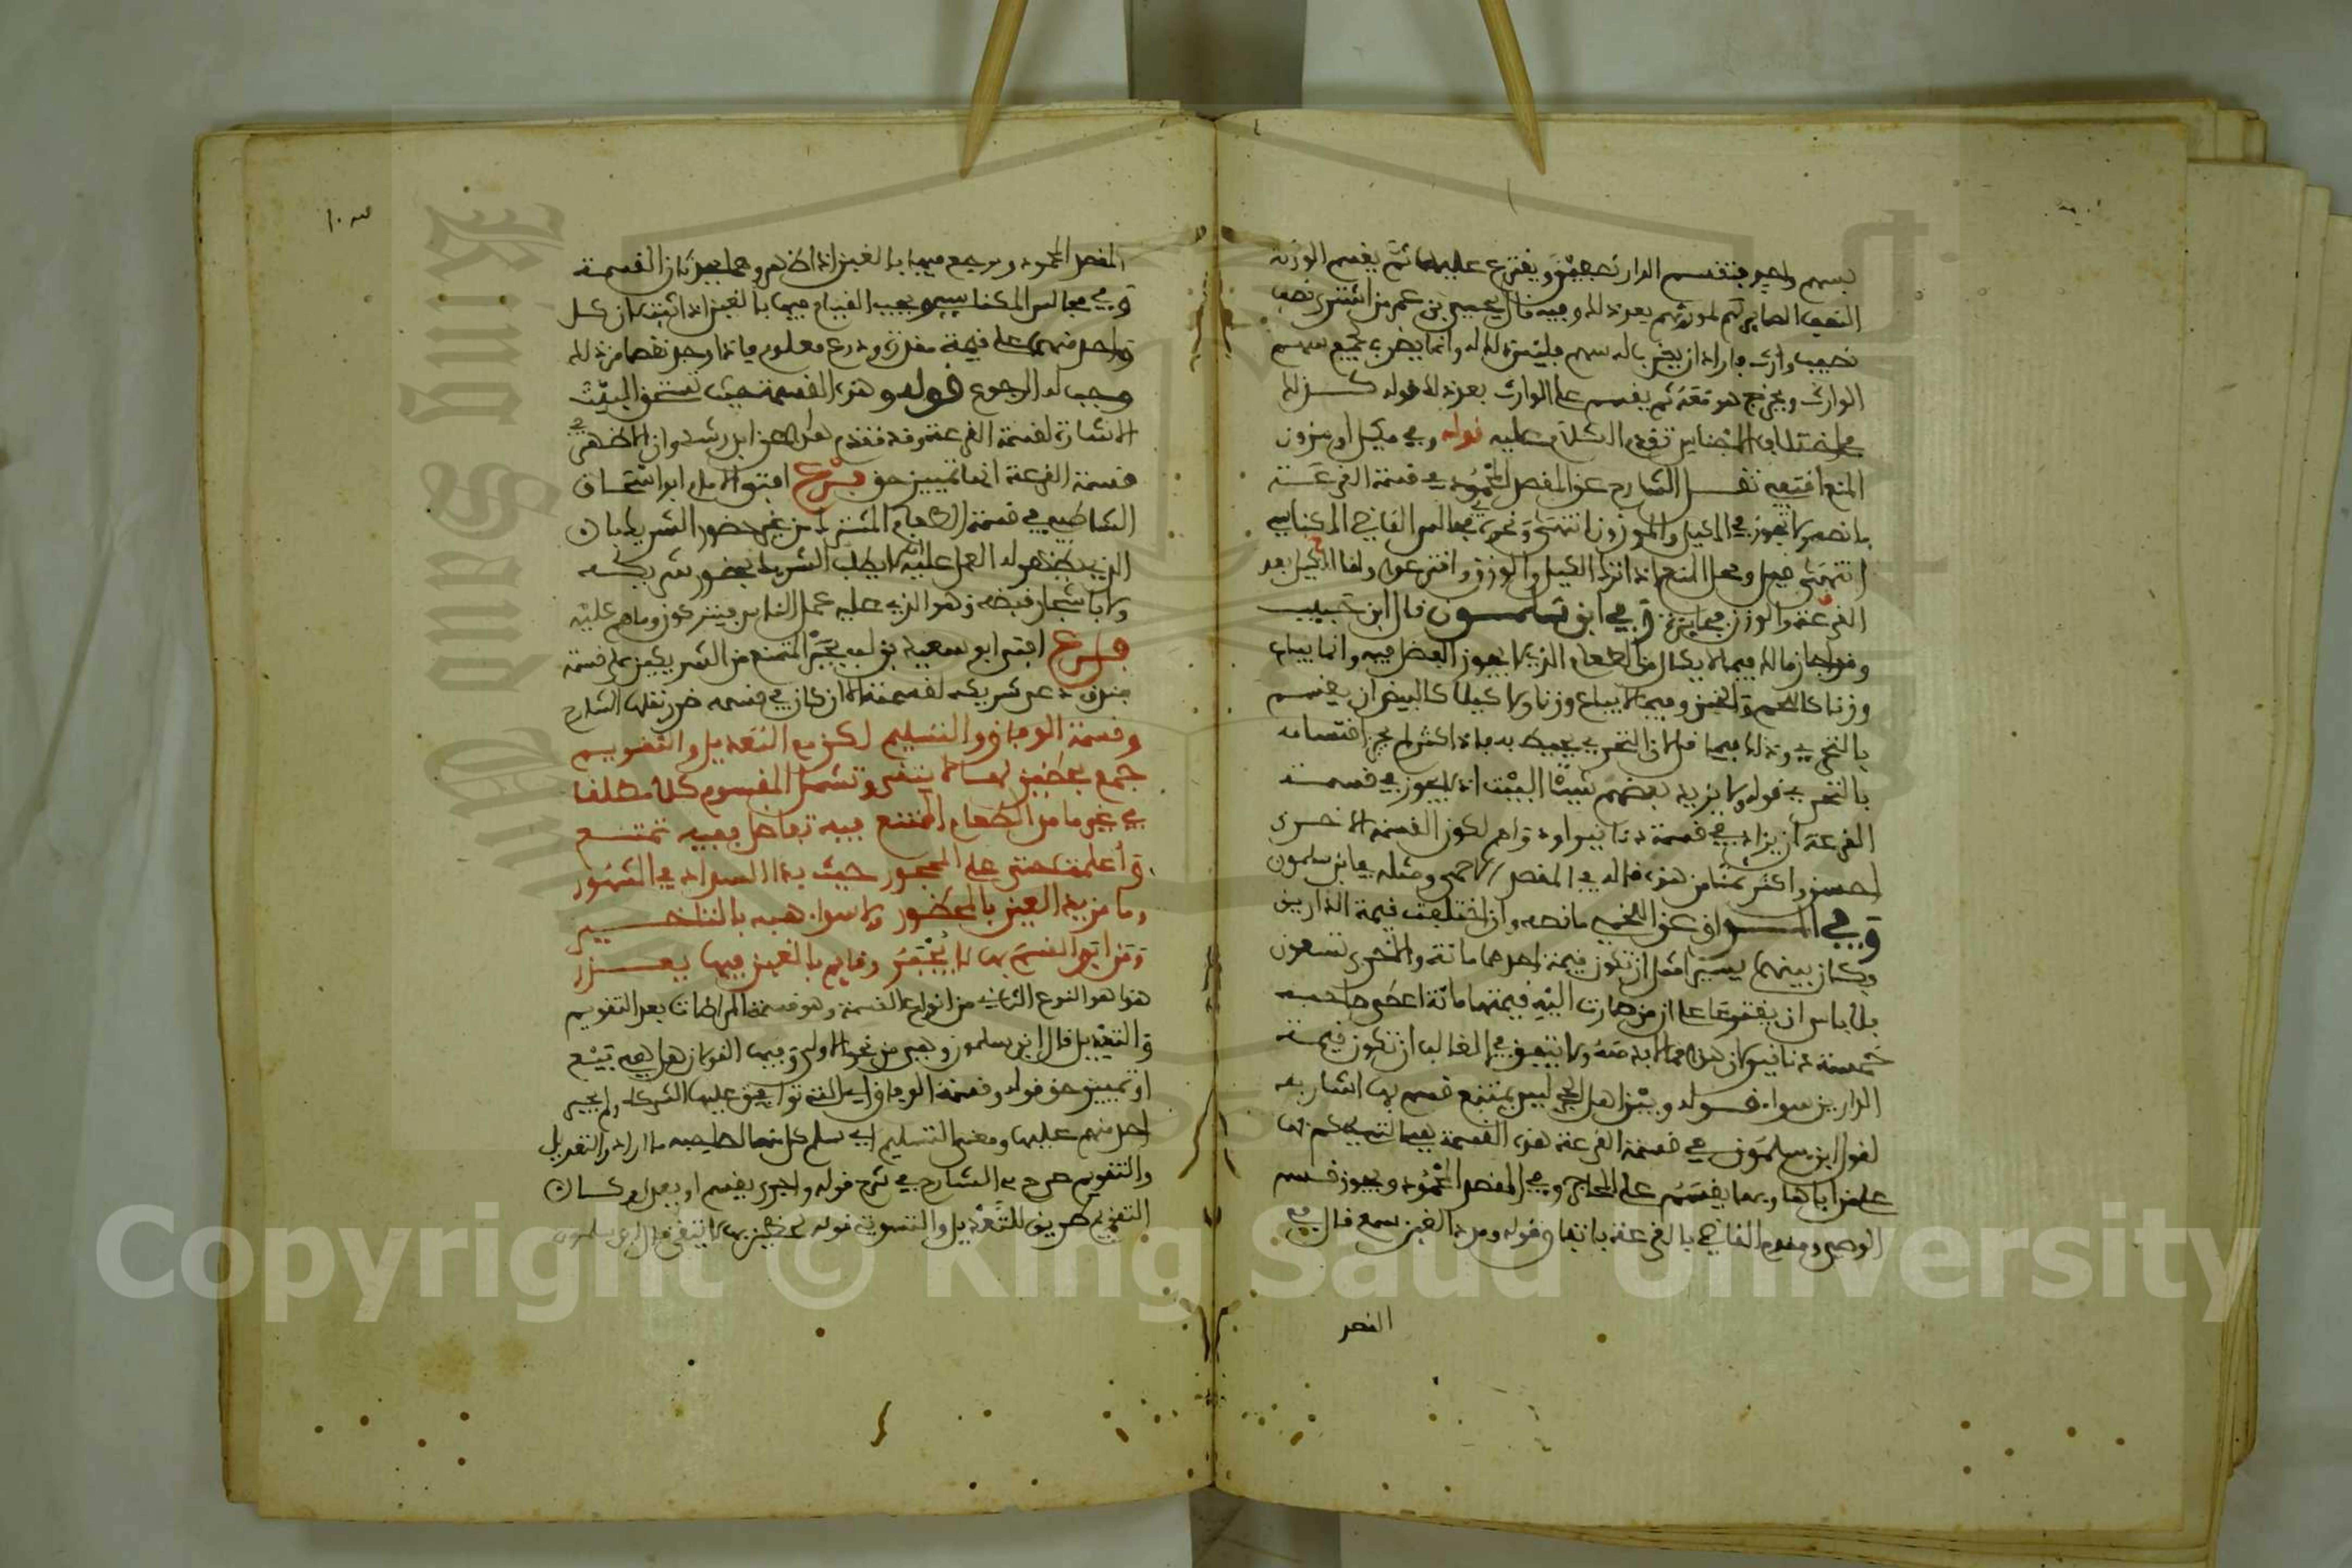 بسهم واحد فتقسم الدار نصفين ويقترع عليها ثم يقسم الورثة
النصف الصاير لهم لمورثهم بعد ذلك وفيه قال يحيى بن عمر من اشترى نصف
نصيب وارث فاراد ان يضرب له بسهم فليس ذلك له وانما يضرب لجميع سهم
الوارث ويخرج هو معه ثم يقسم على الوارث بعد ذلك قوله كذلك
في اختلاف الاجناس تقدم الكلام عليه قوله وفي مكيل او موزون
المنع اقتفى نقل الشارح عن المفصل المحمود في قسمة القرعة
ما نصه ولا تجوز في المكيل والموزون انتهى ونحوه في مجالس القاضي المكناسي
انتهى فيل ومحل المنع اذا ازيد الكيل والوزن واقترعوا واما الكيل بعد
القرعة والوزن فجايز وفي ابن سلمون قال ابن حبيب
وقد اجاز مالك فيما لا يكال من الطعام الذي لا يجوز الفضل فيه وانما يباع
وزنا كاللحم والخبز وفيما لا يباع وزنا ولا كيلا كالبيض ان يقسم
بالتحري وذلك فيما قل لان التحري يحيط به فاذا كثر لم يجز اقتسامه
بالتحري قوله ولا يزيد بعضهم شيئا البيت اي لا يجوز في قسمة
القرعة ان يزاد في قسمة دنانير او دراهم لكون القسمة الاخرى
احسن واكثر ثمنا من هذه قاله في المفصل المحمود ومثله في ابن سلمون
وفي المواق عن اللخمي ما نصه وان اختلفت قيمة الدارين
وكان بينهما يسير مثل ان تكون قيمة احدهما مائة والاخرى تسعون
فلا باس ان يقترعا على ان من صارت اليه قيمتها مائة اعطى صاحبه
خمسة دنانير لان هذا مما لا بد منه ولا يتفق في الغالب ان تكون قيمة
الدارين سواء قوله وبين اهل الحجر ليس يمتنع قسم بها اشار به
لقول ابن سلمون في قسمة القرعة هذه القسمة يقيما لتسليم بها
على من اباها وبها يقسم على المحاجر وفي المفصل المحمود ويجوز قسم
الوصي ومقدم القاضي بالقرعة باتفاق قوله ومدعي الغبن سمع قال في
المفصل
المفصل المحمود ويرجع فيها بالغبن اذا ظهر وهما يعدلان القسمة
وفي مجالس المكناسي ويجب القيام فيها بالغبن اذا اثبت لان كل
واحد منهما على قيمة مقدرة وذرع معلوم فاذا وجد نقصا من ذلك
وجب له الرجوع قوله وهذه القسمة حيث تستحق البيت
الاشارة لقسمة القرعة وقد تقدم نقل عن ابن رشد وان الاظهر في
قسمة القرعة انها تمييز حق فرع افتى الامام ابو اسحاق
الشاطبي في قسمة الطعام المشترك من غير حضور الشريك بان
الذي يظهر له العمل عليه انه لا يطلب الشريك بحضور شريكه
ولا باشهار قبضه وهو الذي عليه عمل الناس فيتركون وما هم عليه
فرع افتى ابو سعيد بن لب يجبر الممتنع من الشريكين على قسمة
فندق دعى شريكه لقسمته الا ان كان في قسمه ضرر نقله الشارح
وقسمة الوفاق والتسليم لكن مع التعديل والتقويم
جمع بحظين بها لا يتقى وتشمل المقسوم كلا مطلقا
في غير ما من الطعام الممتنع فيه تفاضل ففيه تمتنع
وأعملت حتى على المحجور حيث بدا السداد في المشهور
وما مزيد العين بالمحظور ولا سواه هبه بالتاخير
ومن ابى القسم بها لا يجبر وقايم بالغبن فيها يعذر
هذا هو النوع الثاني من انواع القسمة وهو قسمة المراضات بعد التقويم
والتعديل قال ابن سلمون وهي من نحو الاولى وفيها القولان هل هي بيع
او تمييز حق قوله وقسمة الوفاق اي التي توافق عليها الشركاء ولم يجبر
احد منهم عليها ومعنى التسليم اي سلم كل منهما لصاحبه ما اراد والتعديل
والتقويم صرح به الشارح في شرح قوله واجرة بقيسم او يعدل وكان
التقويم طريق للتعديل والتسوية قوله بحظين بها لا يتقى قال ابن سلمون